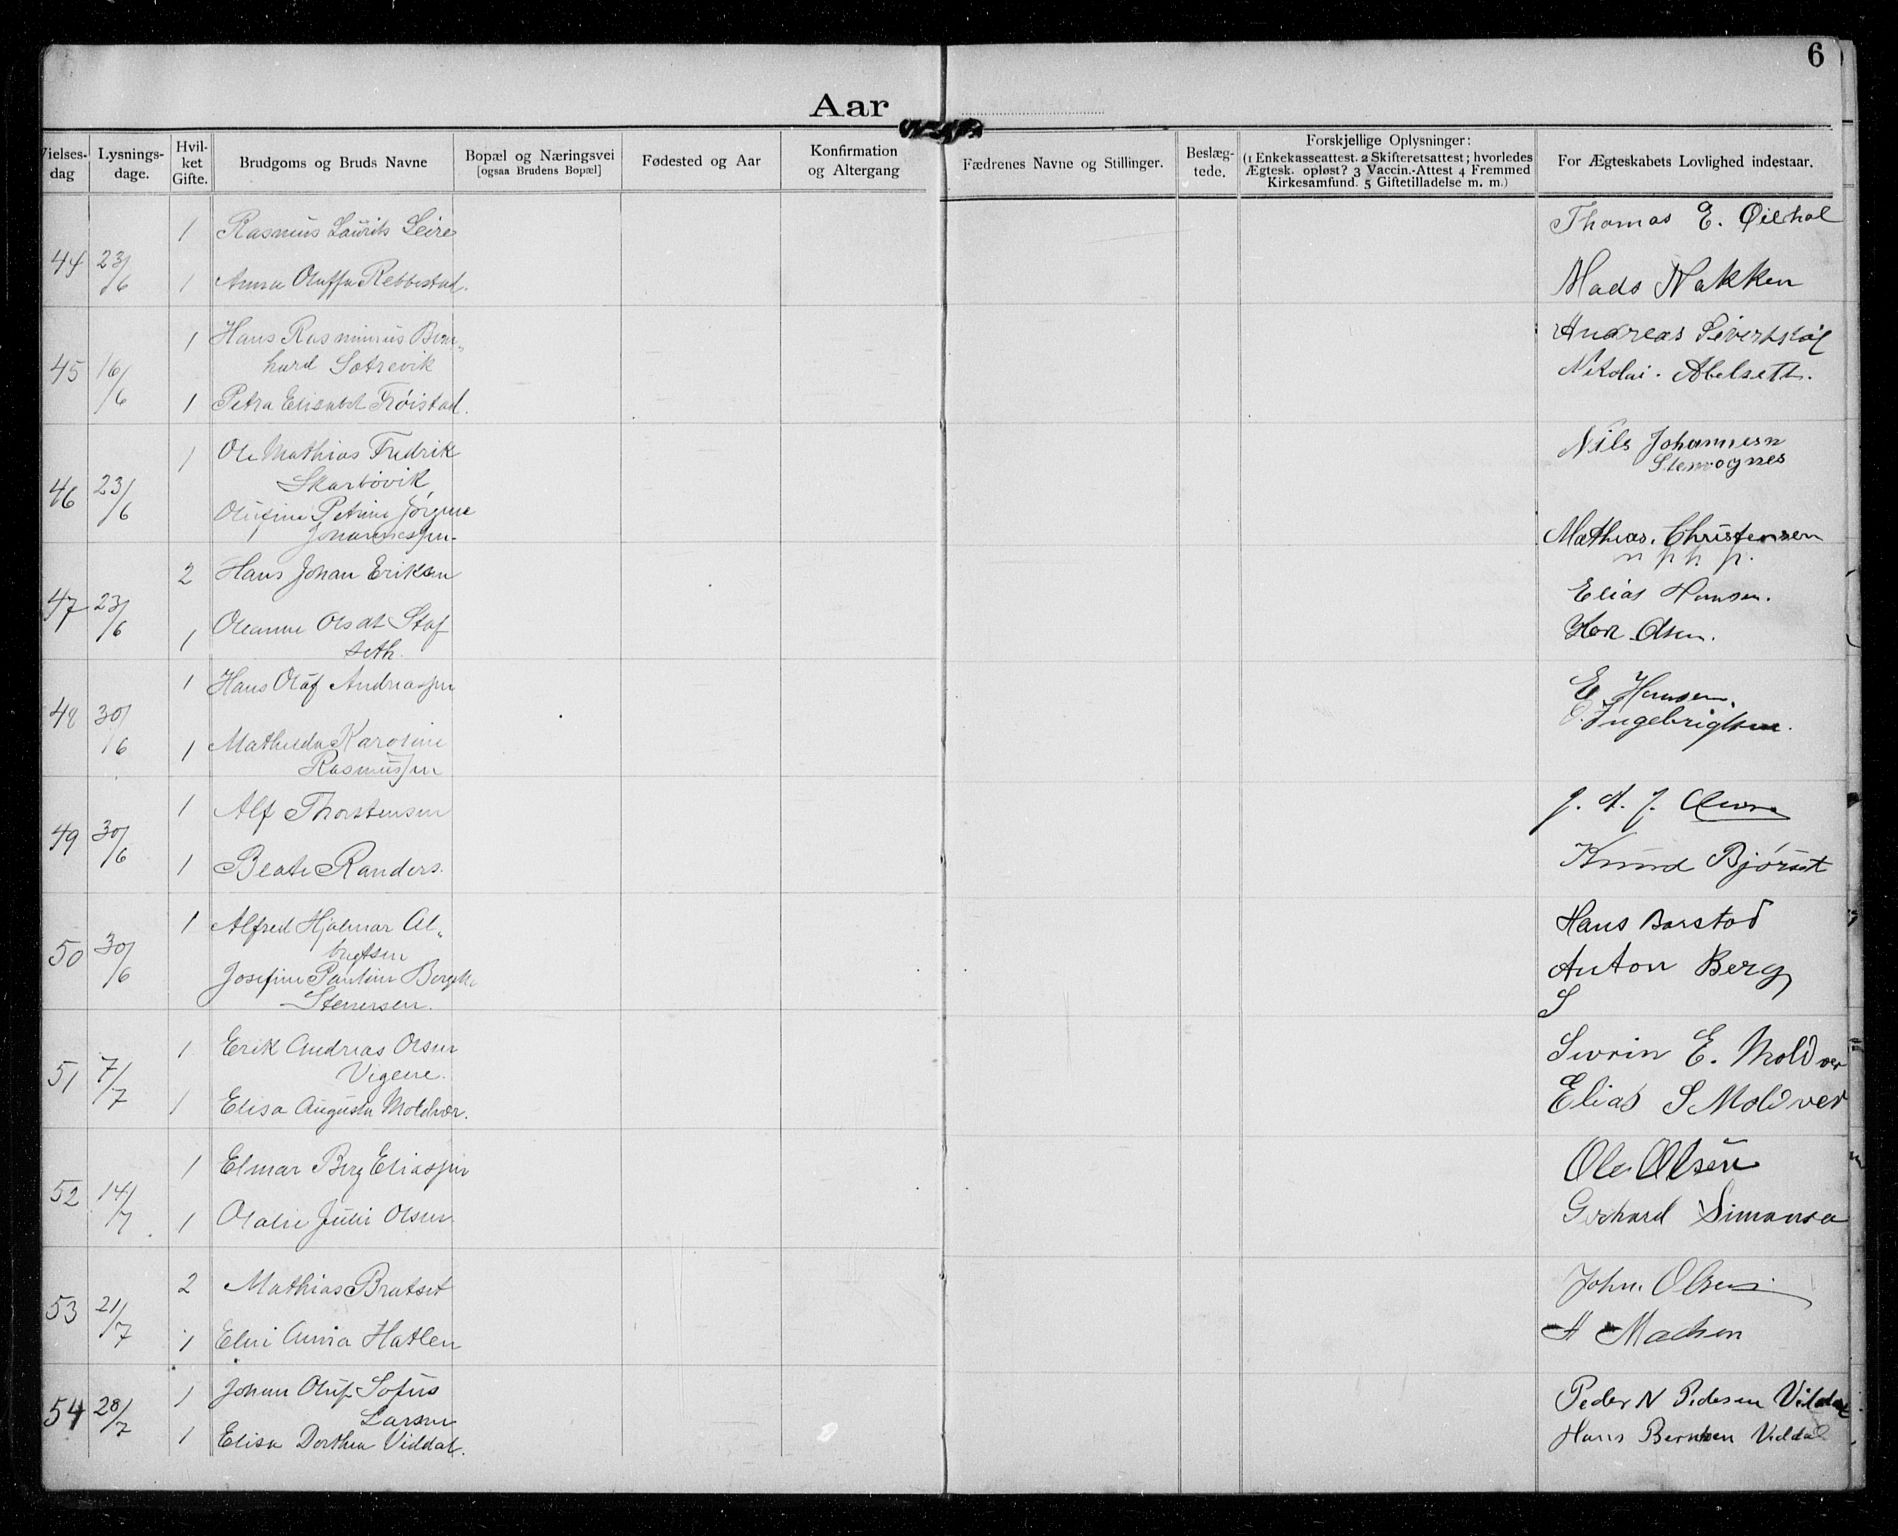 6
Aar
Vielses-dag
Lysnings-dage.
Hvil-ket Gifte.
Brudgoms og Bruds Navne
Bopæl og Næringsvei
[ogsaa Brudens Bopæl]
Fødested og Aar
Konfirmation og Altergang
Fædrenes Navne og Stillinger.
Beslæg-tede.
Forskjellige Oplysninger:
(1 Enkekasseattest. 2 Skifteretsattest; hvorledes
Ægtesk. opløst? 3 Vaccin.-Attest 4 Fremmed
Kirkesamfund. 5 Giftetilladelse m. m.)
For Ægteskabets Lovlighed indestaar.
44 23/6 1 Rasmus Laurits Leire Thomas E.
1 Anna Oluffa Rebbestad. Mads Nakken
45 16/6 1 Hans Rasminius Bern- Andreas
hard Sætrevik Nikolai. Abelsett.
1 Petra Elisabet Frøistad.
46 23/6 1 Ole Mathias Fredrik Nils Johannesen
Skarbøvik Stenvognes
Olufine Petrine Jørgine
Johannessen. Mathias. Christensen
47 23/6 2 Hans Johan Eriksen Elias Hansen.
1 Oleanne Olsdt Staf Olsen.
seth.
48 30/6 1 Hans Olaf Andreassen E. Hansen.
1 Mathilda Karoline Ingebrigtsen.
Rasmussen
49 30/6 1 Alf Thorstensen J. A. J.
1 Beate Randers. Knud Bjørset
50 30/6 1 Alfred Hjalmar Al- Hans Barstad
brigtsen Anton Berg
Josefine Pauline Bergitte S
Stenersen.
51 7/7 1 Erik Andreas Olsen Sivrin E. Moldver
Vigene.
1 Elisa Augusta Moldvær. Elias S Moldver
52 14/7 1 Elmar Berg Eliassen Ole Olsen
1 Olalie Julie Olsen. Gerhard Simonsen
53 21/7 2 Mathias Bratset John. Olsen
1 Elni Anna Hatlen Madsen
54 28/7 1 Johan Oluf Sofus Peder N Pedersen Viddal
Larsen
1 Elisa Dorthea Viddal. Hans Berntsen Viddal